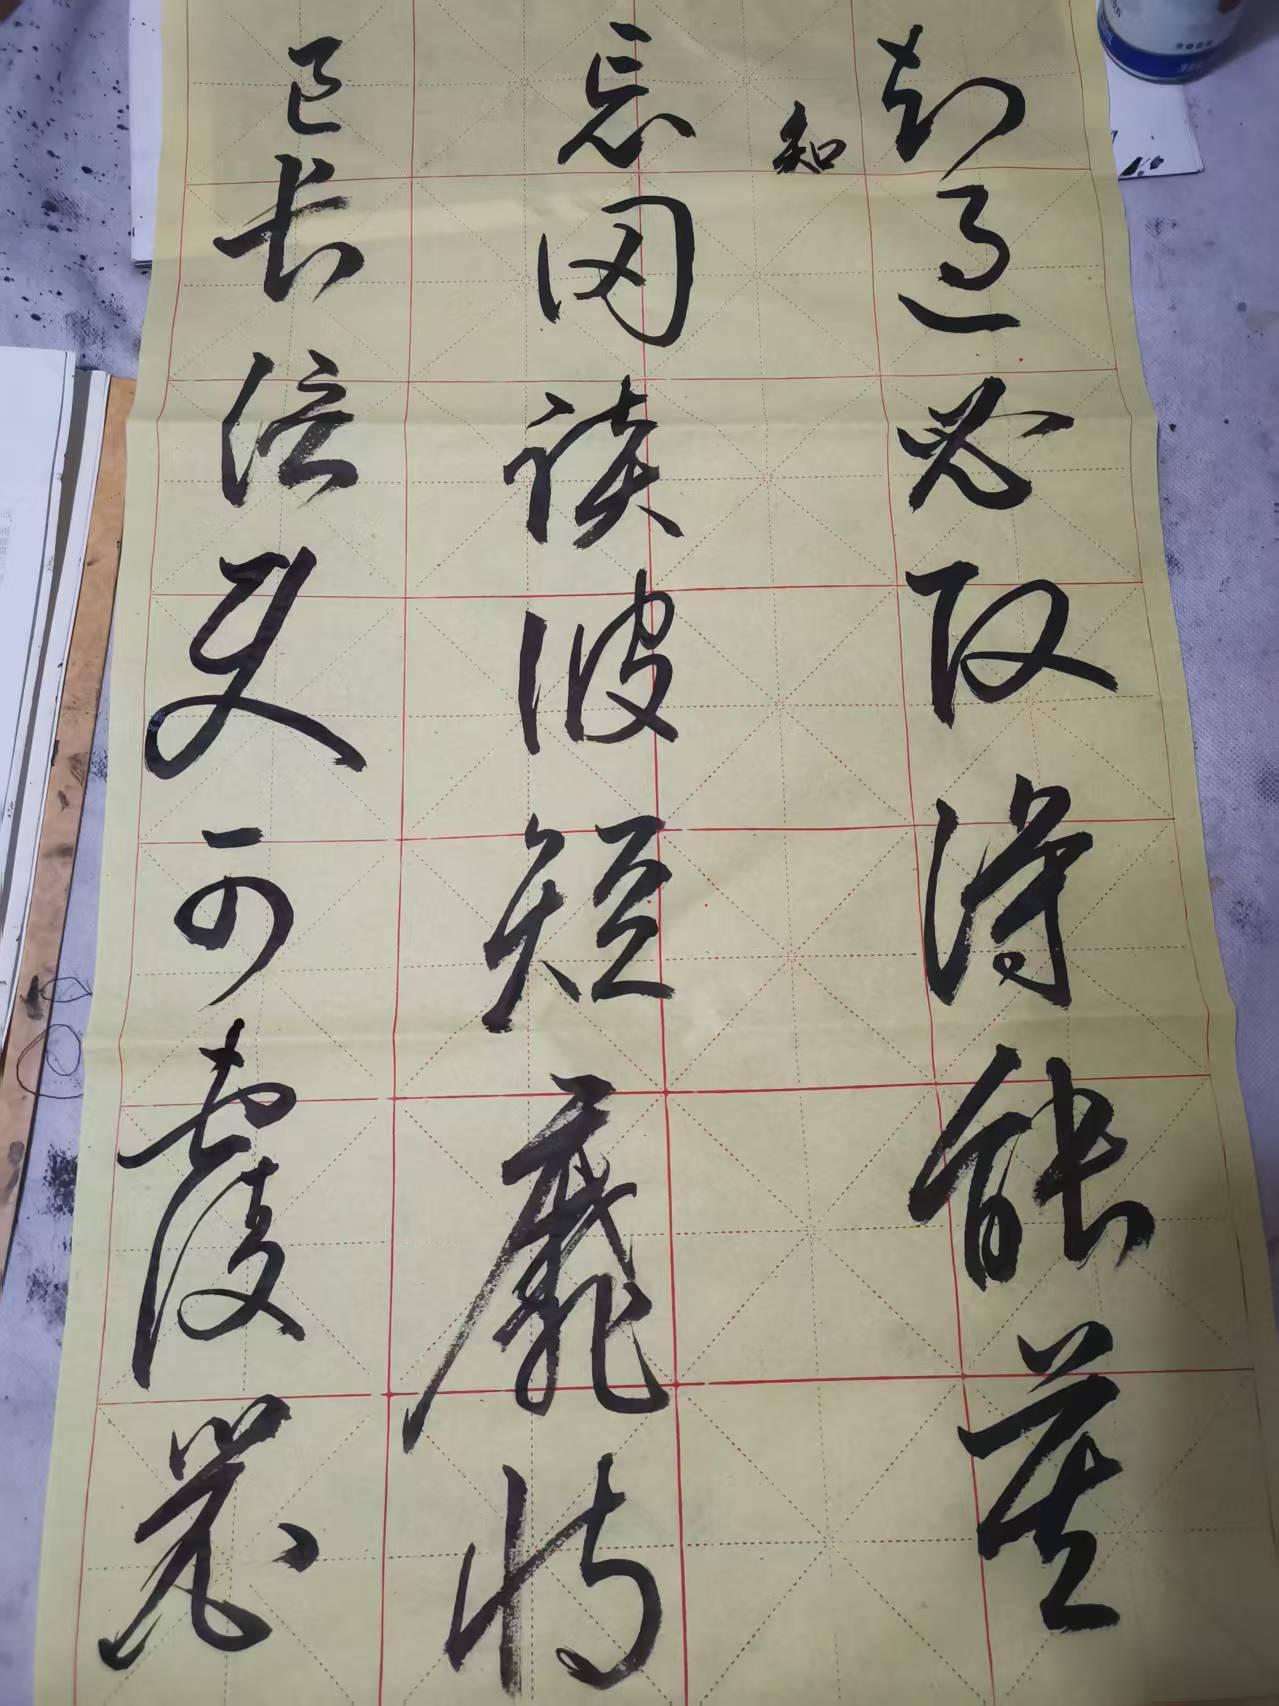 知过必改得能莫
知
忘罔谈彼短靡恃
己长信使可覆器